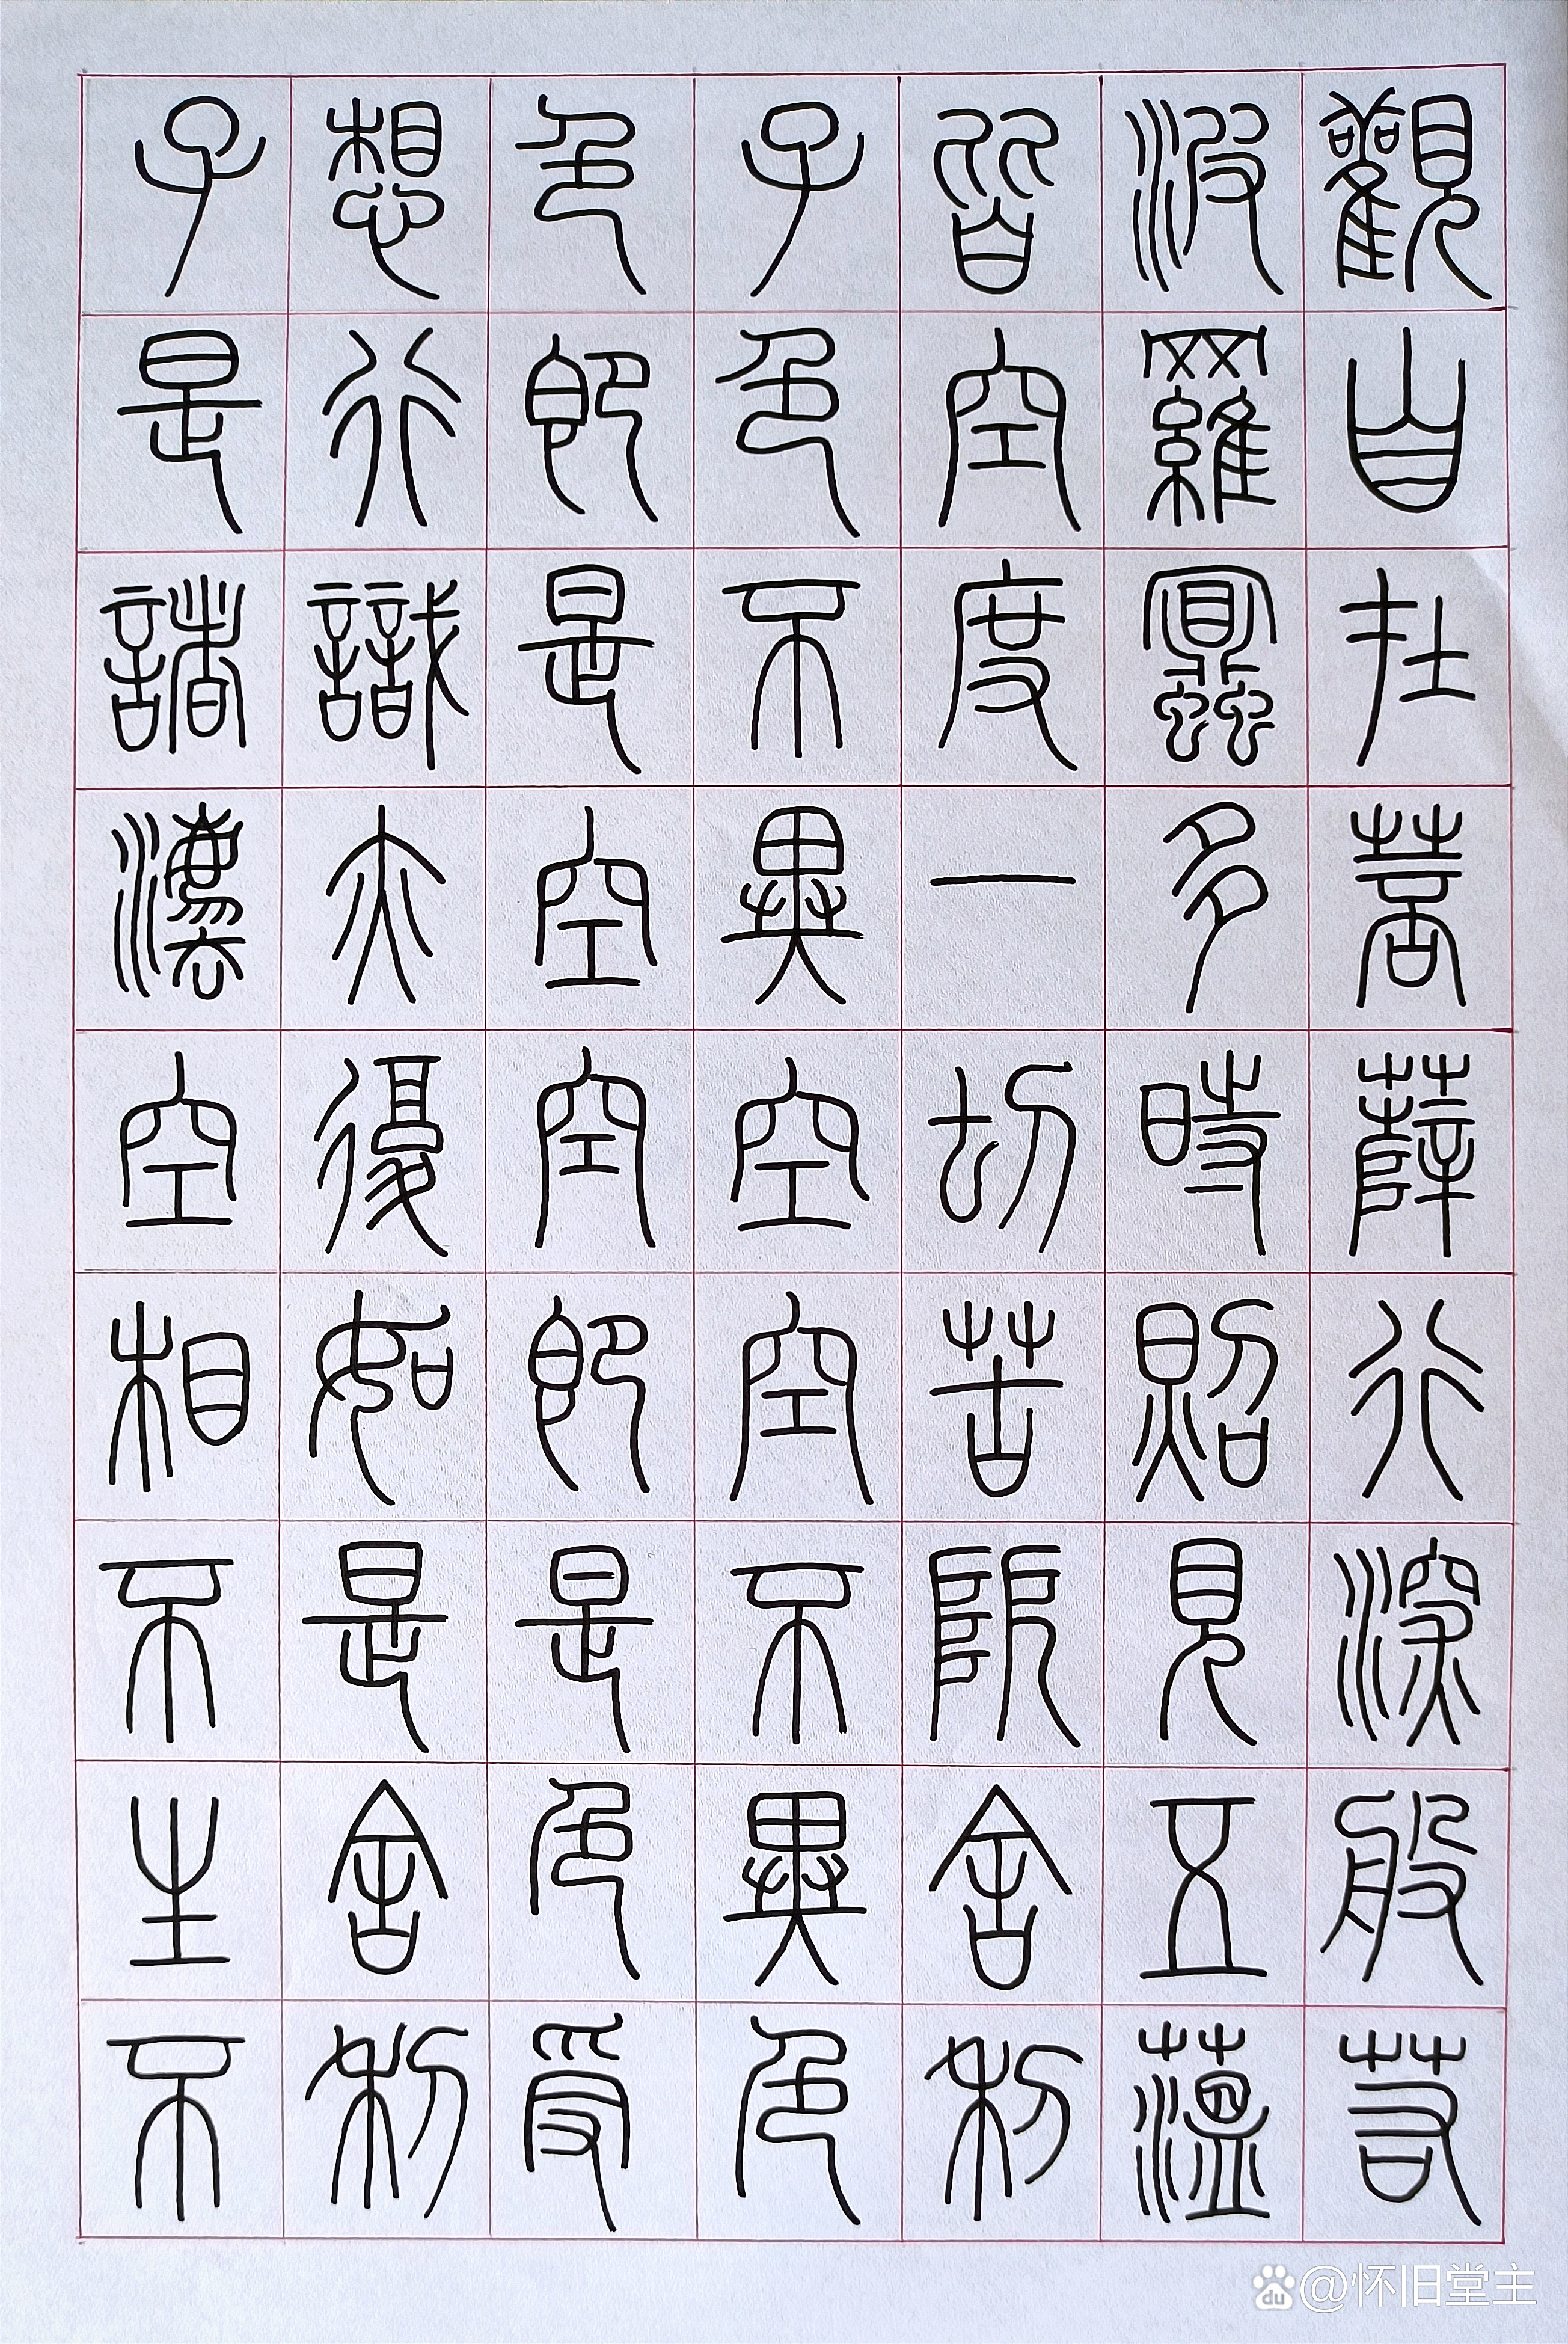 觀自在菩薩行深般若
波羅蜜多時照見五蘊
皆空度一切苦厄舍利
子色不異空空不異色
色即是空空即是色受
想行識亦復如是舍利
子是諸灋空相不生不
du @怀旧堂主